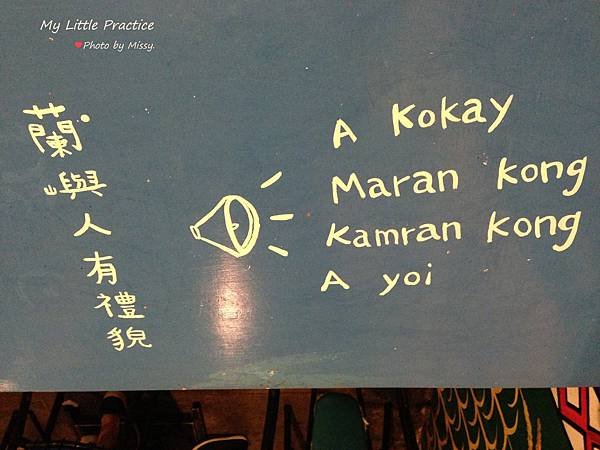 My Little Practice
Photo by Missy.
蘭嶼人有禮貌
A Kokay
Maran kong
Kamran kong
A yoi